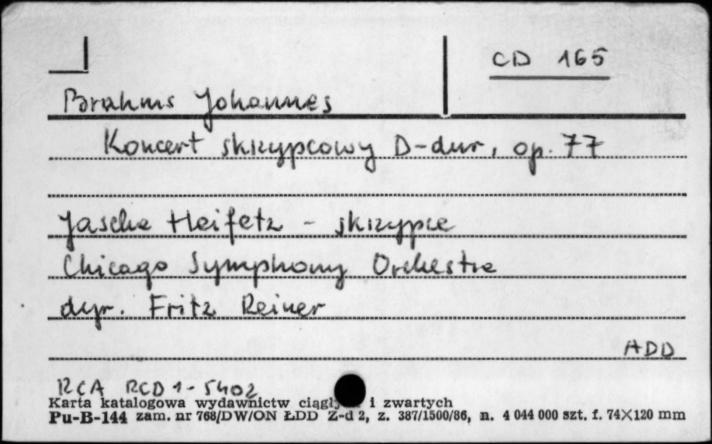 CD 165
Brahms Johannes
Koncert skrzypcowy D-dur, op. 77
Jascha Heifetz - skrzypce
Chicago Symphony Orchestra
dyr. Fritz Reiner
ADD
RCA RCD 1-5402
Karta katalogowa wydawnictw ciągłych i zwartych
Pu-B-144 zam. nr 768/DW/ON ŁDD Z-d 2, z. 387/1500/86, n. 4 044 000 szt. f. 74×120 mm